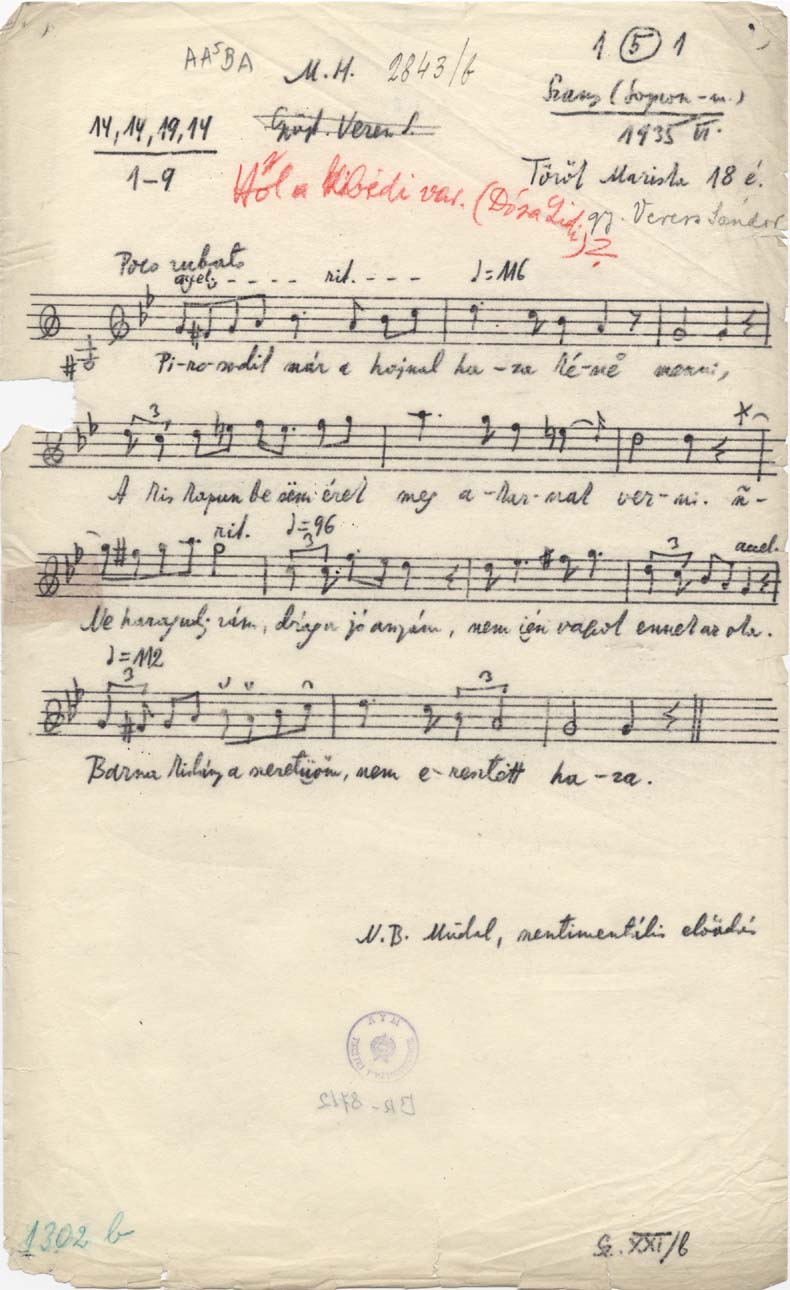 AA⁵BA
M. H. 2843/b
1 ⑤ 1
14, 14, 19, 14
1-9
Gyűjt. Veress S.
Szany (Sopron-m.)
1935 VI.
Török Mariska 18 é.
gy. Veress Sándor
Hol a kibédi var. (Dósa Lidi)?
Poco rubato
accel. - - - - rit. - - - ♩=116
Pi-ro-sodik már a hajnal ha-za ké-ně menni,
A kis kapunk be sëm éret meg a-kar-nak ver-ni.
rit. ♩=96 accel.
Ne haragudj rám, drága jó anyám, nem ién vagyok ennek az oka.
♩=112
Barna kislány a szeretüöm, nem e-resztëtt ha-za.
N.B. Műdal, szentimentális előadás
BR-8712
1302 b
Sz. XXI/b